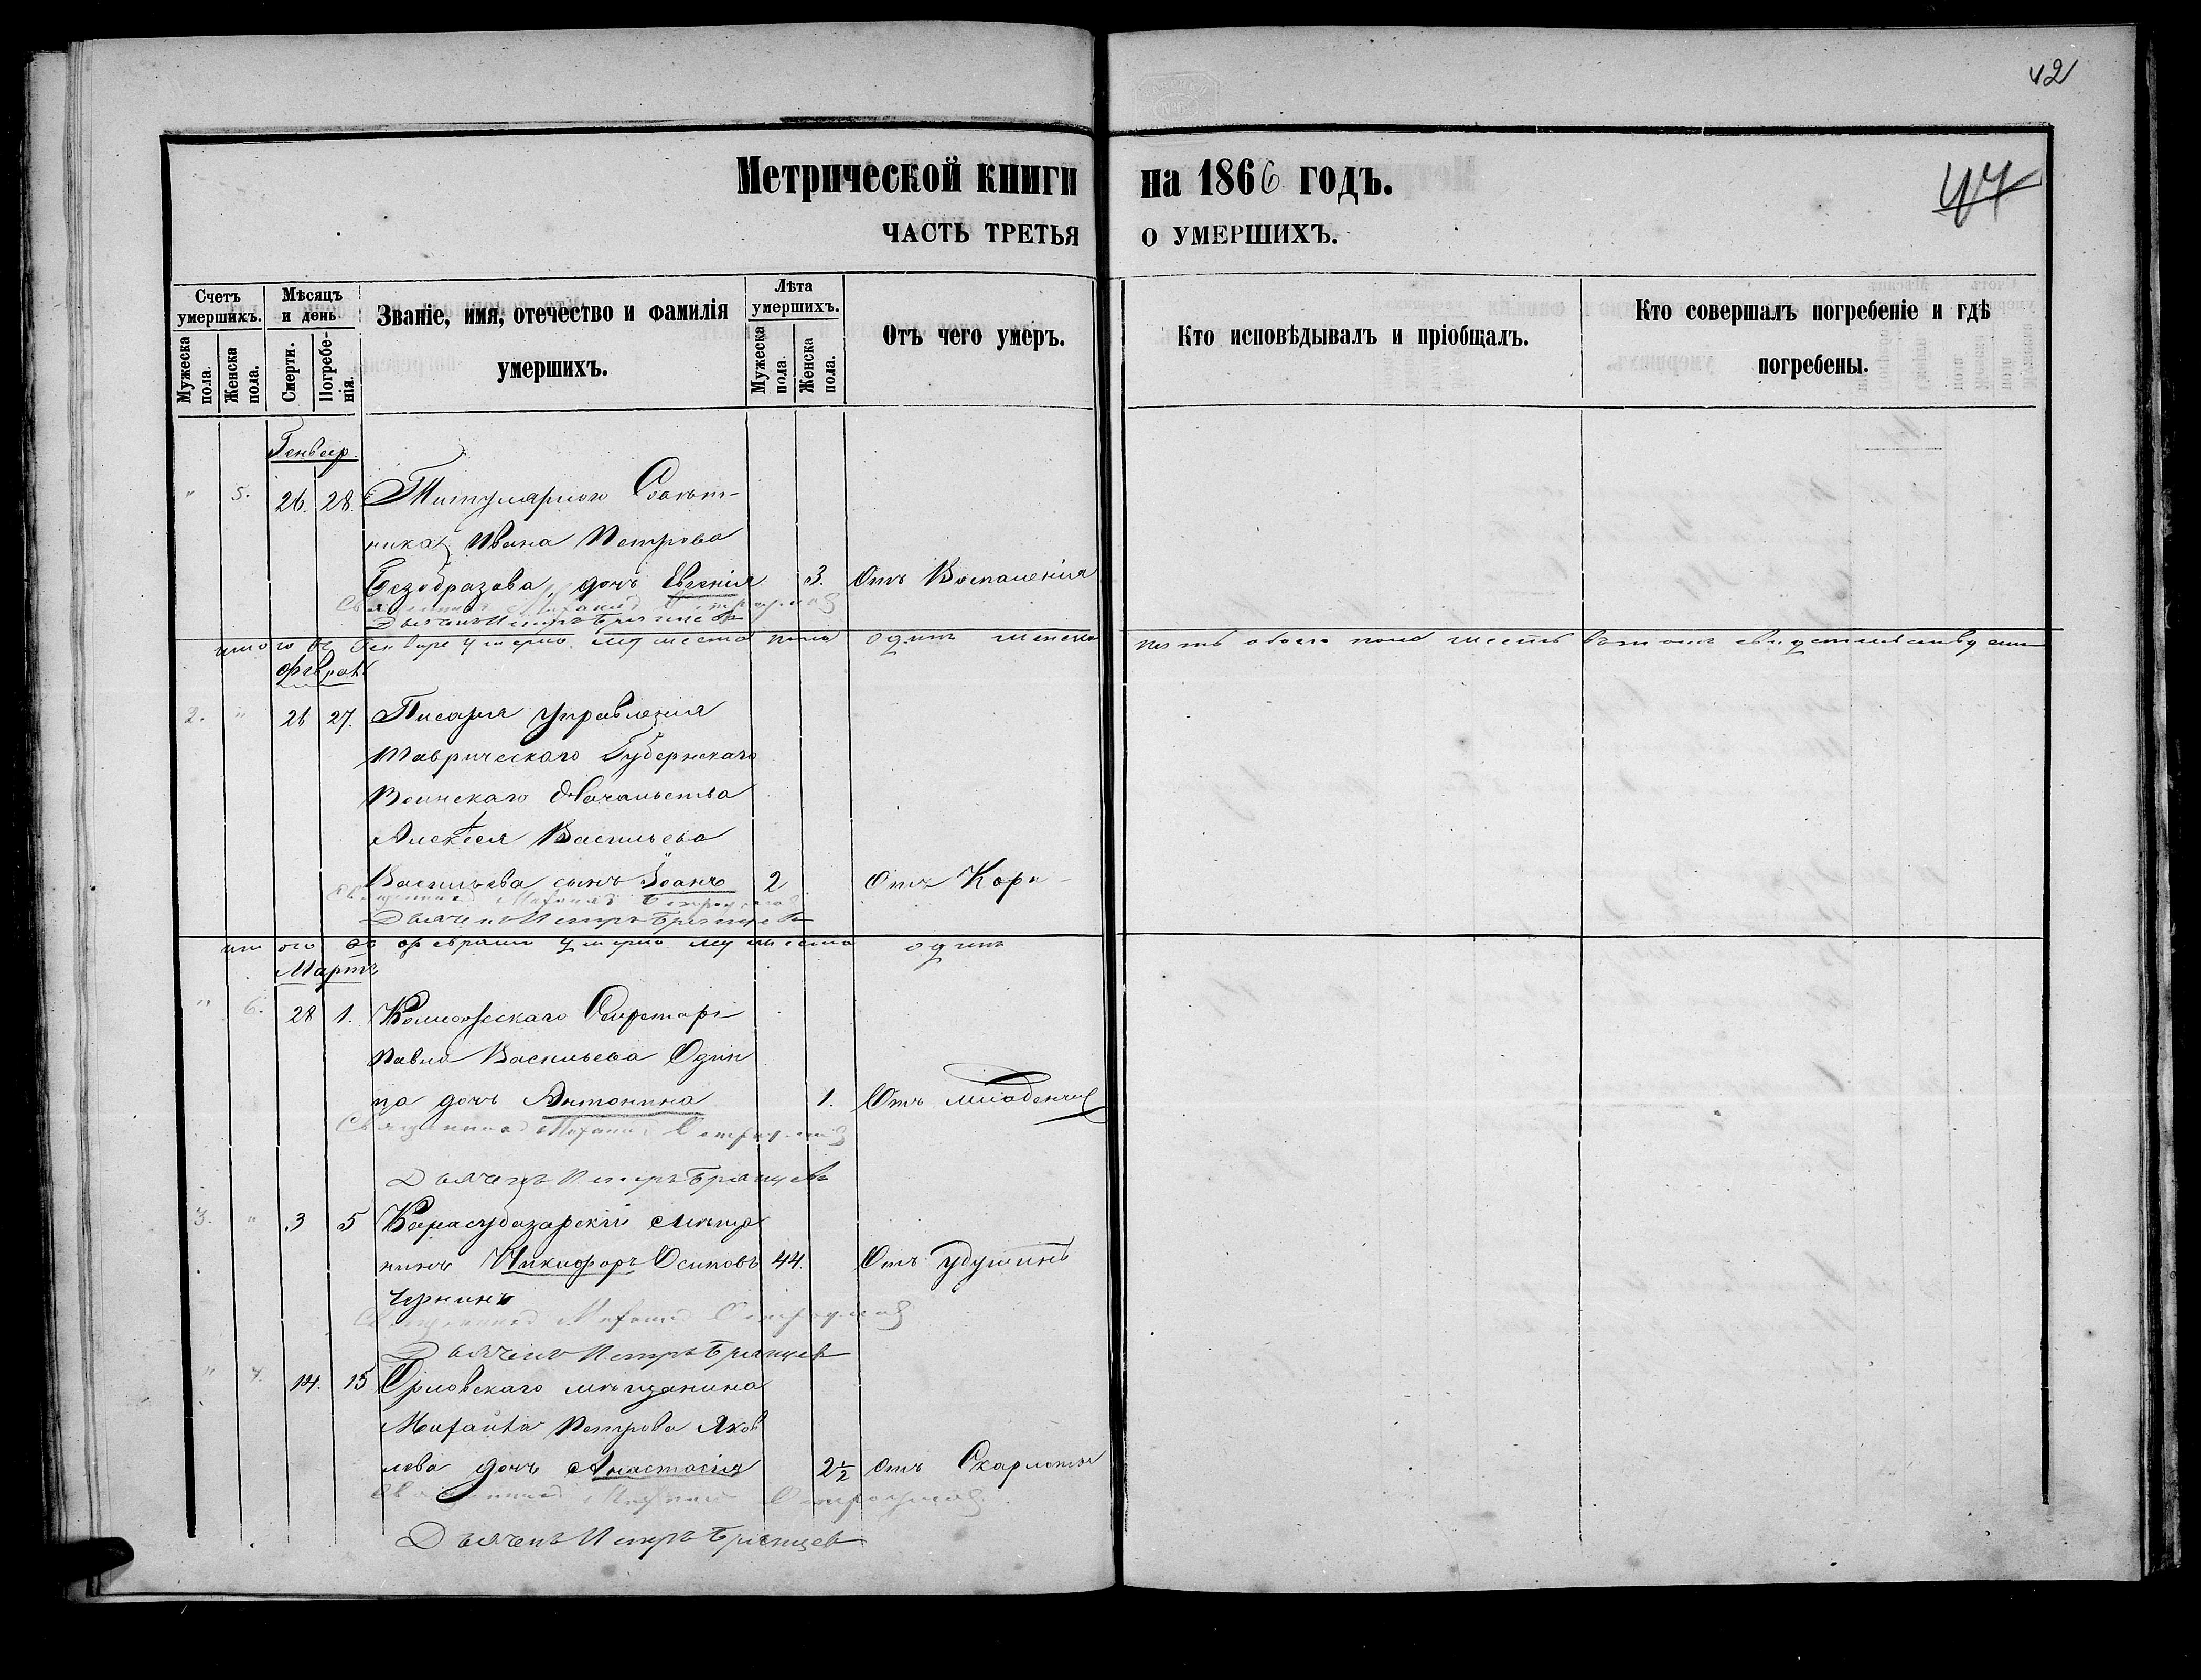 42
Метрической книги на 1866 годъ.
47
ЧАСТЬ ТРЕТЬЯ О УМЕРШИХЪ.
Счетъ умершихъ.
Мужеска пола.
Женска пола.
Мѣсяцъ и день
Смерти.
Погребенія.
Званіе, имя, отечество и фамилія
умершихъ.
Лѣта умершихъ.
Мужеска пола.
Женска пола.
Отъ чего умеръ.
Кто исповѣдывалъ и пріобщалъ.
Кто совершалъ погребеніе и гдѣ
погребены.
Генвар.
" 5. 26. 28. Титулярнаго Совѣт-
ника Ивана Петрова
Безобразова, дочь Евгенія 3. Отъ Воспаленія
Священникъ
Дьячекъ Петръ Брянцевъ
итого въ Генваре умерло мужеска пола одинъ женска пять обоего пола шесть въ томъ свидетельствуемъ
Февраль
2. " 26 27. Писаря Управленія
Таврическаго Губернскаго
Воинскаго Начальства
Алексѣя Васильева
Васильева сынъ Іоаннъ 2 Отъ Кори
Священникъ
Дьячекъ Петръ Брянцевъ
итого въ феврале умерло мужеска одинъ
Мартъ
" 6. 28 1. Коллежскаго Секретаря
Павла Васильева Один
ца дочь Антонина 1. Отъ младенческ
Священникъ
Дьячекъ Петръ Брянцевъ
3. " 3 5 Карасубазарскій мѣща
нинъ Никифоръ Осиповъ 44. Отъ удушья
Чернинъ
Священникъ
Дьячекъ Петръ Брянцевъ
" 7. 14. 15 Орловскаго мѣщанина
Михаила Петрова Яков
лева дочь Анастасія 2 1/2 отъ Скарлатины
Священникъ
Дьячекъ Петръ Брянцевъ